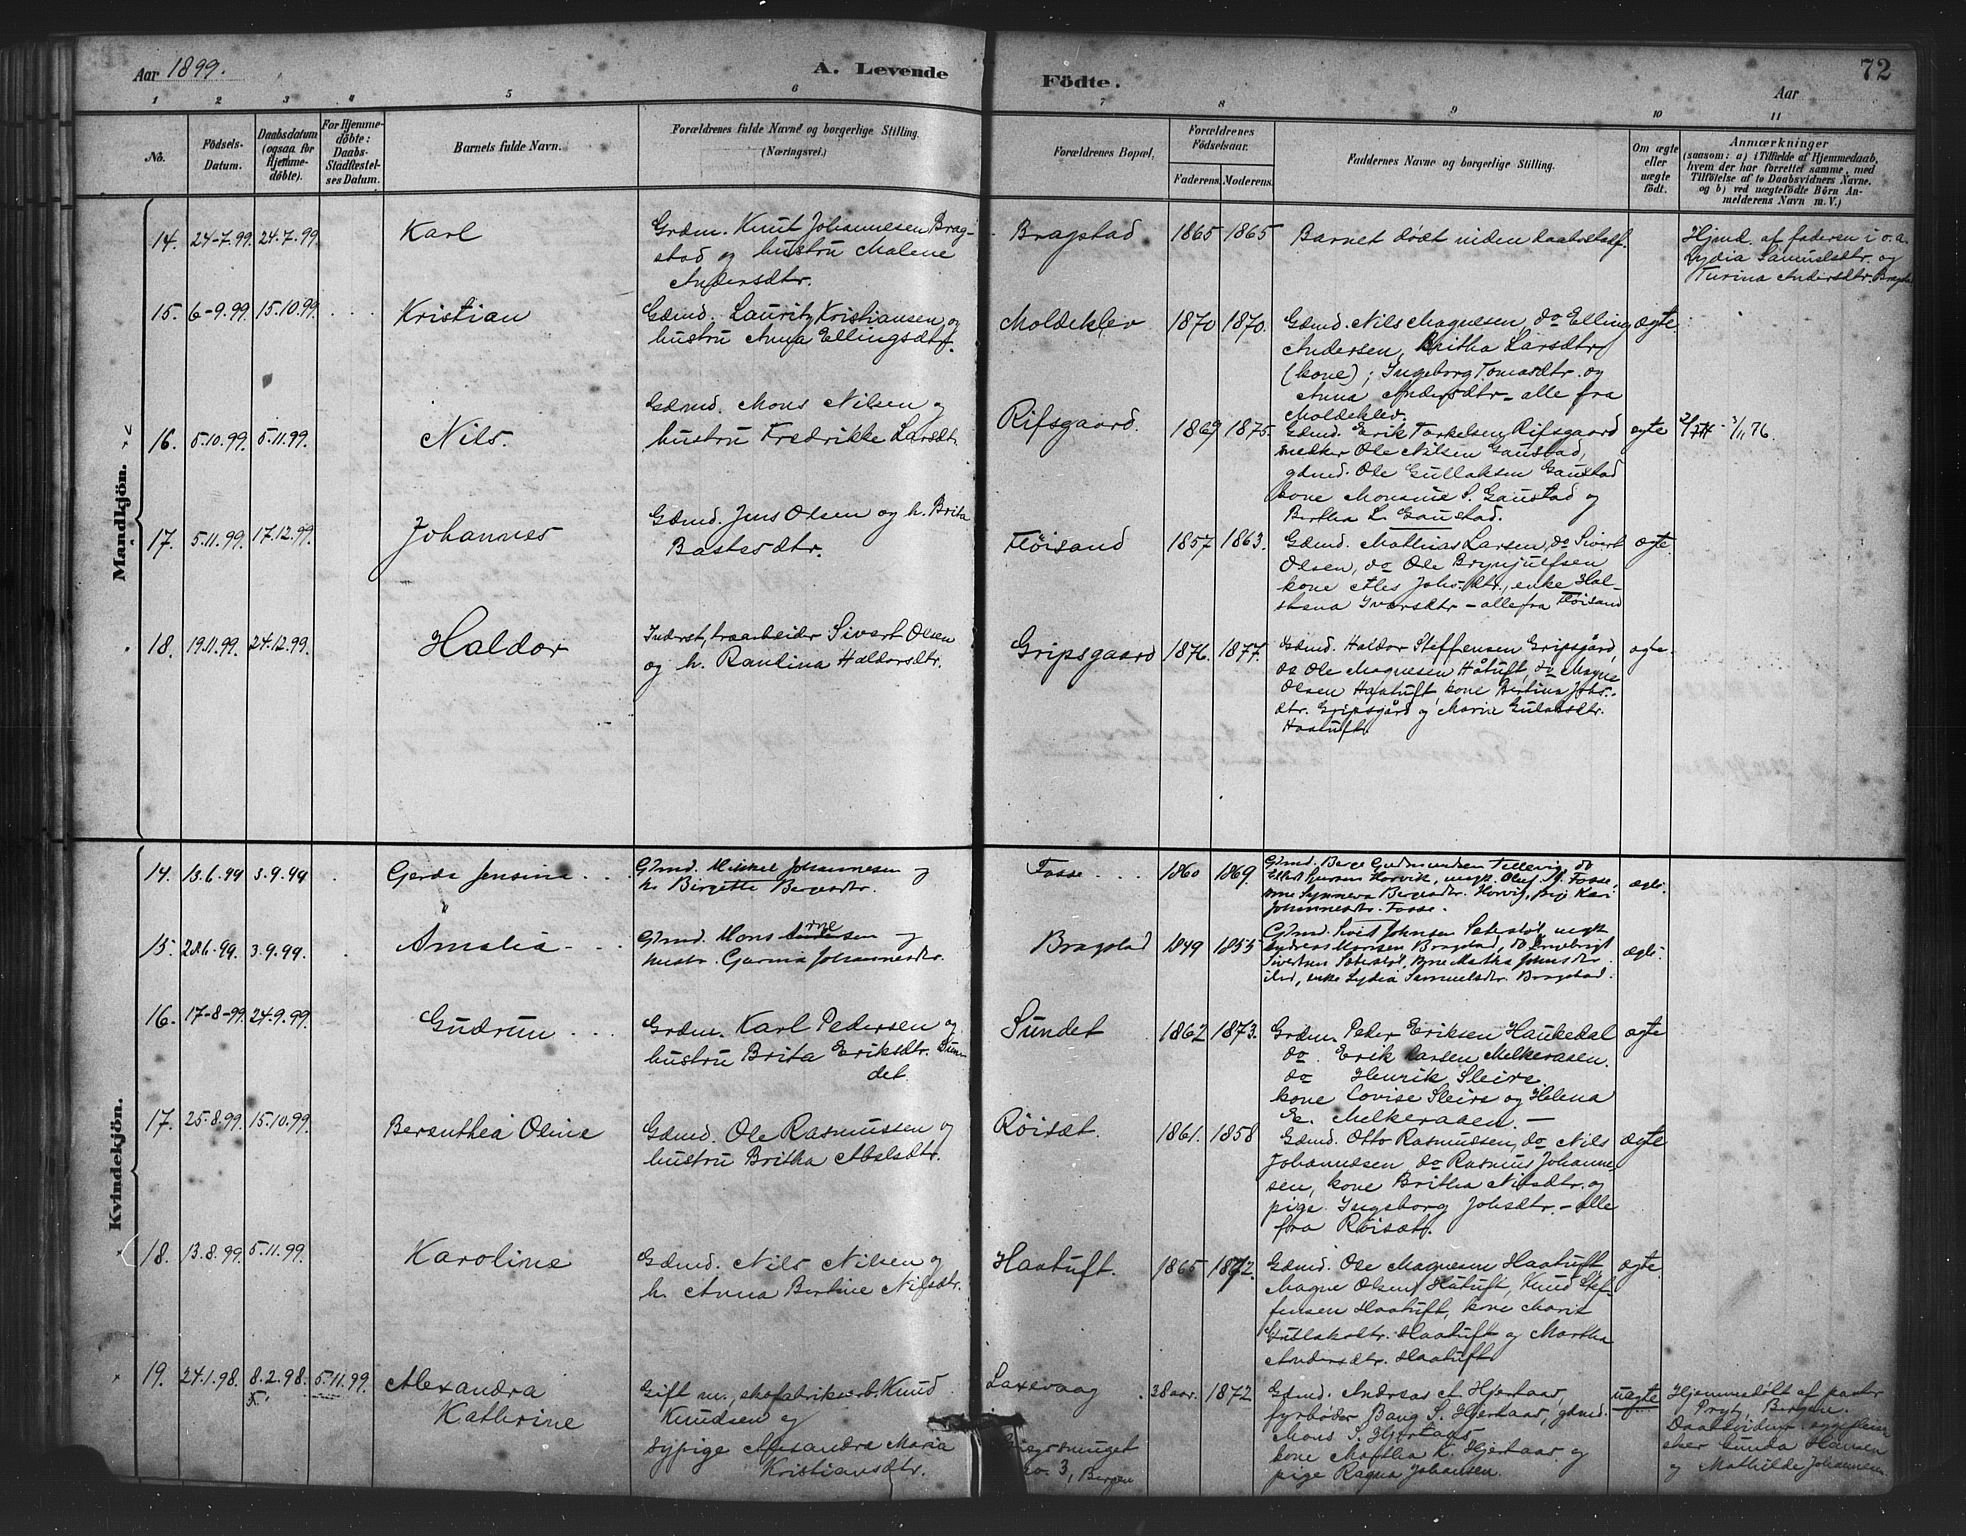 Aar 1899.
A. Levende
Födte.
Aar
72
1 2 3 4 5 6 7 8 9 10 11
No.
Födsels-
Datum.
Daabsdatum
(ogsaa for
Hjemme-
döbte).
For Hjemme-
döbte:
Daabs-
Stadfæstel-
ses Datum.
Barnets fulde Navn.
Forældrenes fulde Navne og borgerlige Stilling.
(Næringsvei.)
Forældrenes Bopæl.
Forældrenes
Födselsaar.
Faderens. Moderens.
Faddernes Navne og borgerlige Stilling.
Om ægte
eller
uægte
födt.
Anmærkninger
(saasom: a) i Tilfælde af Hjemmedaab,
hvem der har forrettet samme, med
Tilföielse af to Daabsvidners Navne.
og b) ved uægtefödte Börn An-
melderens Navn m. V.)
Mandkjön.
14. 24-7.99 24.7.99 Karl
Grdm. Knut Johannesen Brag-
stad og hustru Malene
Andersdtr.
Bragstad 1865 1865 Barnet dødt inden daabsstadf.
Hjmd. af faderen i o.a.
Lydia Samuelsdtr. og
Turina Andersdtr. Bragstad
15. 6-9.99 15.10.99. Kristian
Gdmd. Lauritz Kristiansen og
hustru Anna Ellingsdtr.
Moldeklev 1870 1870. Gdmd. Nils Magnesen, do Elling
Andersen, Britha Larsdtr
(kone); Ingeborg Tomasdtr. og
Anna Andersdtr - alle fra
Moldeklev.
ægte
16. 5.10.99. 5.11.99. Nils.
Gdmd. Mons Nilsen og
hustru Fredrikke Larsdt.
Rifsgaard. 1869 1875. Gdmd. Erik Torkelsen Rifsgaard
Ole Nilsen Gaustad,
gdmd. Ole Gullaksen Gaustad
kone Monsine S. Gaustad og
Bertha L. Gaustad.
ægte
17. 5.11.99. 17.12.99. Johannes
Gdmd. Jens Olsen og h. Brita
Bastesdtr.
Fløisand 1857 1863. Gdmd. Mathias Larsen, do Sivert
Olsen, do Ole Brynjulfsen
kone Ales Johs.dtr., enke Hal-
Ivarsdtr - alle fra Fløisand
ægte
18. 19.11.99. 24.12.99. Haldor
Inderst, træarbeider Sivert Olsen
og h. Raulina Haldorsdtr.
Gripsgaard 1876. 1877. Gdmd. Haldor Steffensen Gripsgård,
do Ole Magnesen Håtuft, do Magne
Olsen Haatuft, kone Bertina Johs.-
dtr. Gripsgård og Marie Gulaksdtr.
Haatuft.
ægte
Kvindekjön.
14. 13.6.99 3.9.99 Gerda Jensine
Gdmd. Mikkel Johannesen og
h. Birgitte Bergesdtr.
Fosse 1860 1869. Gdmd. Berge Gudmundsen Tellevig, do
Horvik, ungk. Oluf M. Fosse,
Synneva Bergesdtr. Horvig, pige Kari
Johannesdtr. Fosse.
ægte
15. 28.6.99. 3.9.99. Amalia
Gdmd. Mons Andersen og
hustr. Gurina Johannesdtr.
Bragstad 1849 1855 Gdmd. Sivert Johnsen Sæterstøl, ungk.
Andreas Monsen Bragstad, do Engebrigt
Sivertsen Sæterstøl, Martha Johnsdtr
ibid, enke Lydia Samuelsdtr. Bragstad.
ægte
16. 17-8-99. 24.9.99. Gudrun
Grdm. Karl Pedersen og
hustru Brita Eriksdtr. Sun-
det.
Sundet 1862 1873. Grdm. Peder Eriksen Haukedal
do Erik Larsen Melkeraaen.
do Henrik Sleire
kone Lovise Sleire og Helena
E. Melkeraaen. -
ægte
17. 25.8.99. 15.10.99. Berenthea Oline
Gdmd. Ole Rasmussen og
hustru Britha Abelsdtr.
Røisæt. 1861. 1858 Gdmd. Otto Rasmussen, do Nils
Johannesen, do Rasmus Johanne-
sen, kone Britha Nilsdtr. og
pige Ingeborg Johsdtr. - alle
fra Røisæt.
ægte
18. 13.8.99. 5.11.99. Karoline
Gdmd. Nils Nilsen og
h. Anna Bertine Nilsdtr.
Haatuft. 1865 1872. Gdmd. Ole Magnesen Haatuft
Magne Olsen Håtuft, Knud Stef-
fensen Haatuft, kone Marit
Gullaksdtr. Haatuft og Martha
Andersdtr. Haatuft
ægte.
19. 24.1.98. 8.2.98. 5.11.99. Alexandra
Kathrine
Gift m., skofabrikarb. Knud
Knudsen og
sypige Alexandra Maria
Kristiansdtr.
Laxevaag
no. 3, Bergen
38 aar. 1872 Gdmd. Andreas A. Hjertaas,
fyrbøder Bang S. Hjertaas, gdmd.
Mons S. Hjertaas
kone Martha K. Hjertaas og
pige Ragna Johansen.
uægte
Hjemmedøbt af pastor
Prytz, Bergen.
Gunda Hansen
og Mathilde Johannesen